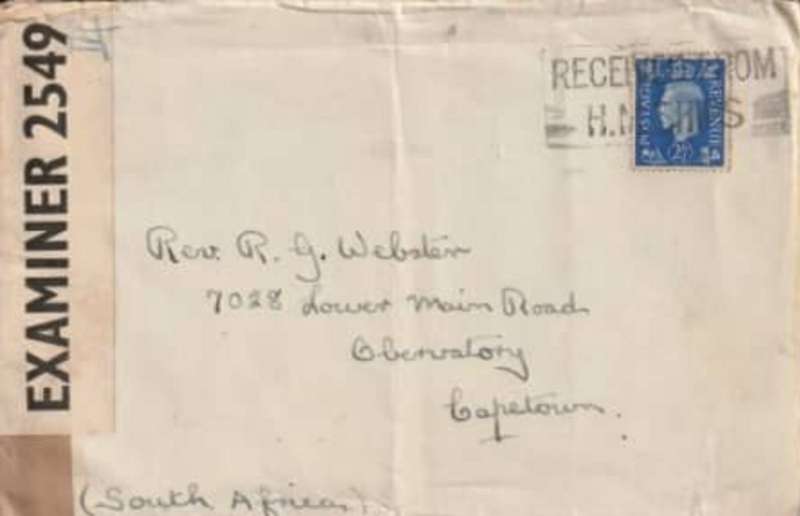 EXAMINER 2549
RECEIVED FROM
H.M. SHIPS
POSTAGE REVENUE
2½
Rev. R. G. Webster
7028 Lower Main Road
Obervatory
Capetown.
(South Africa)